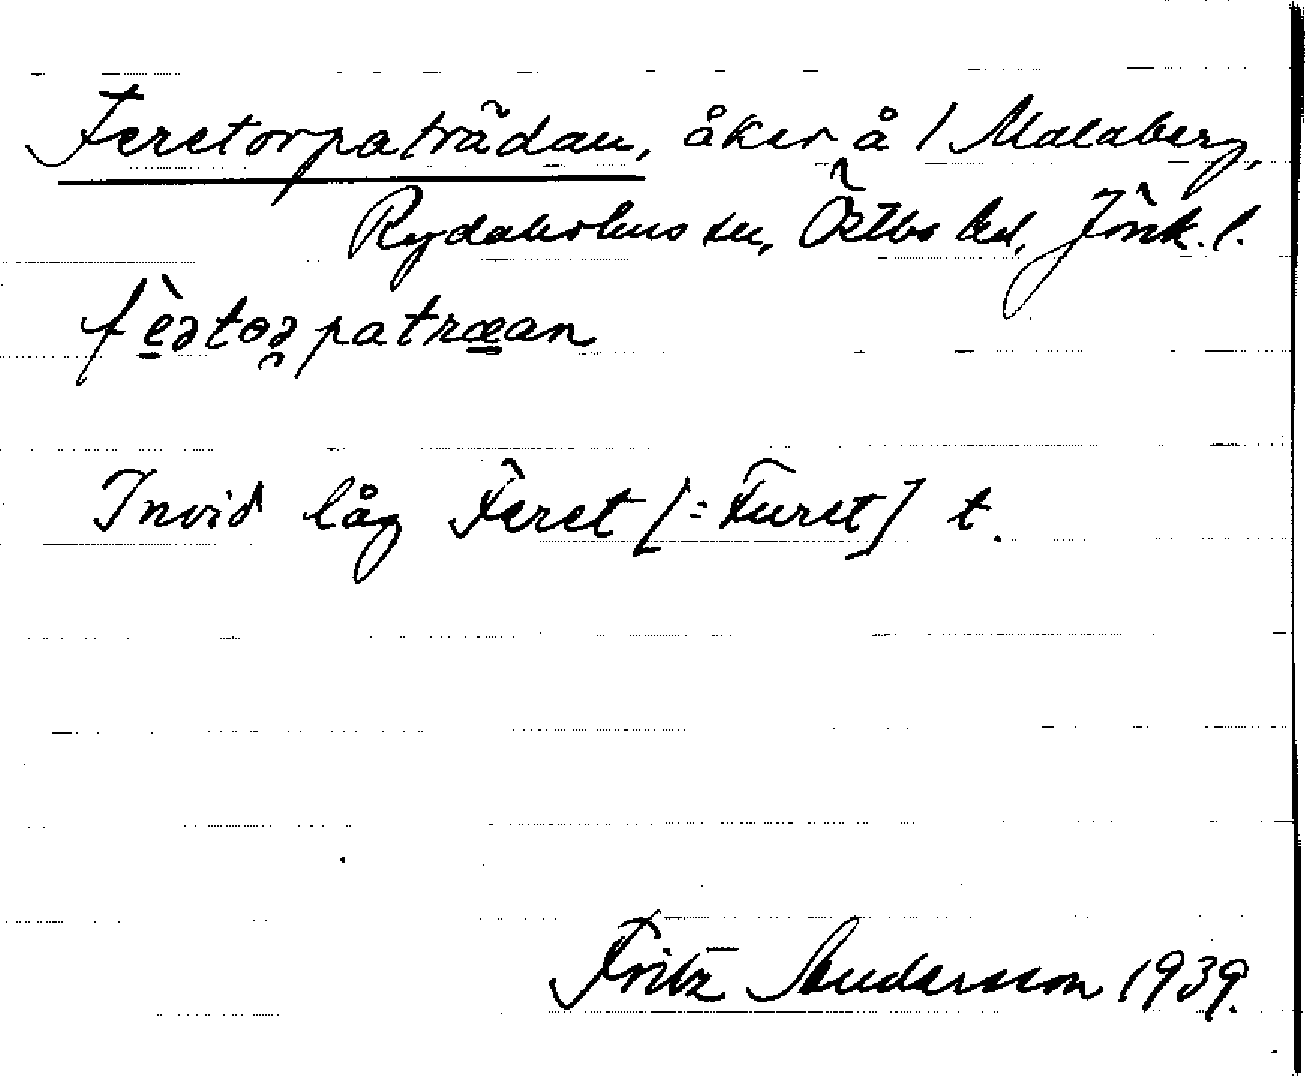 Feretorpaträdan, åker å 1 Malaberg,
Rydaholms sn, Östbo hd, Jönk. l.
fèətoəpatræan
Invid låg Feret [= Furet] t.
Fritz Andersson 1939.